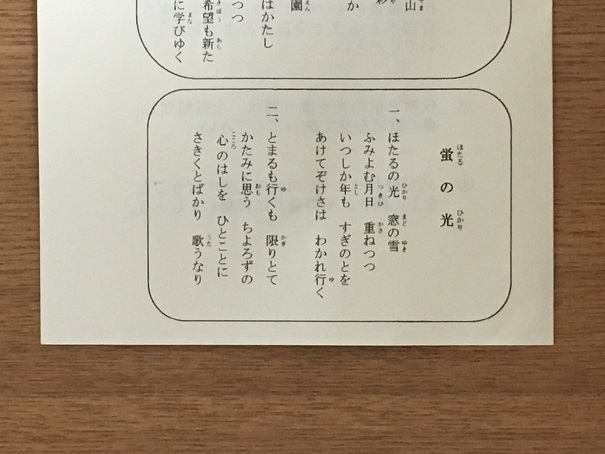 山
か
園
はかたし
つつ
希望も新た
に学びゆく
蛍の光
一、ほたるの光 窓の雪
ふみよむ月日 重ねつつ
いつしか年も すぎのとを
あけてぞけさは わかれ行く
二、とまるも行くも 限りとて
かたみに思う ちよろずの
心のはしを ひとことに
さきくとばかり 歌うなり